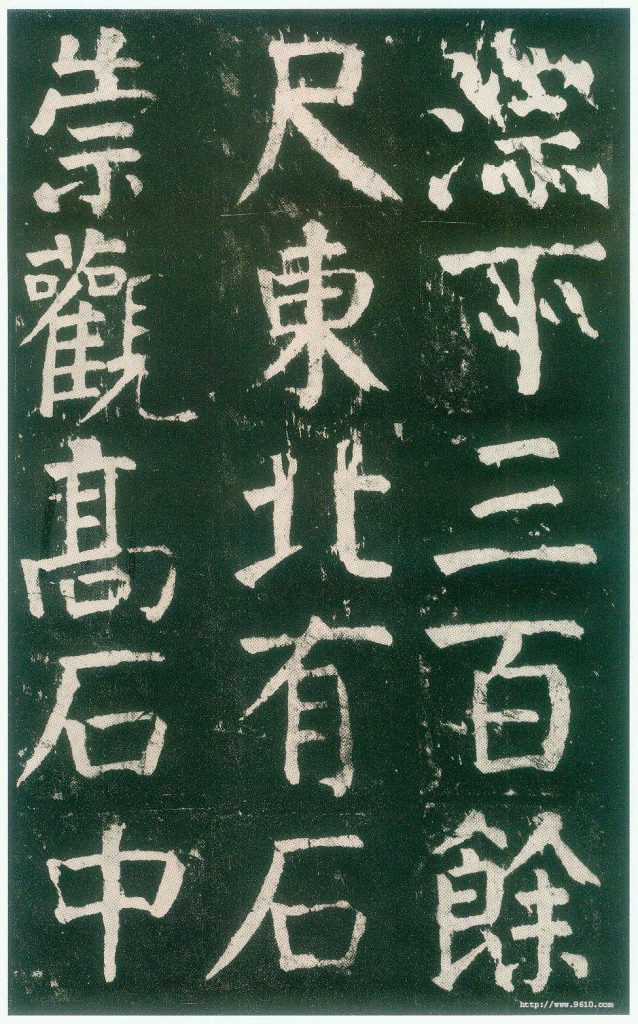 淙下三百餘
尺東北有石
崇觀髙石中
http://www.9610.com